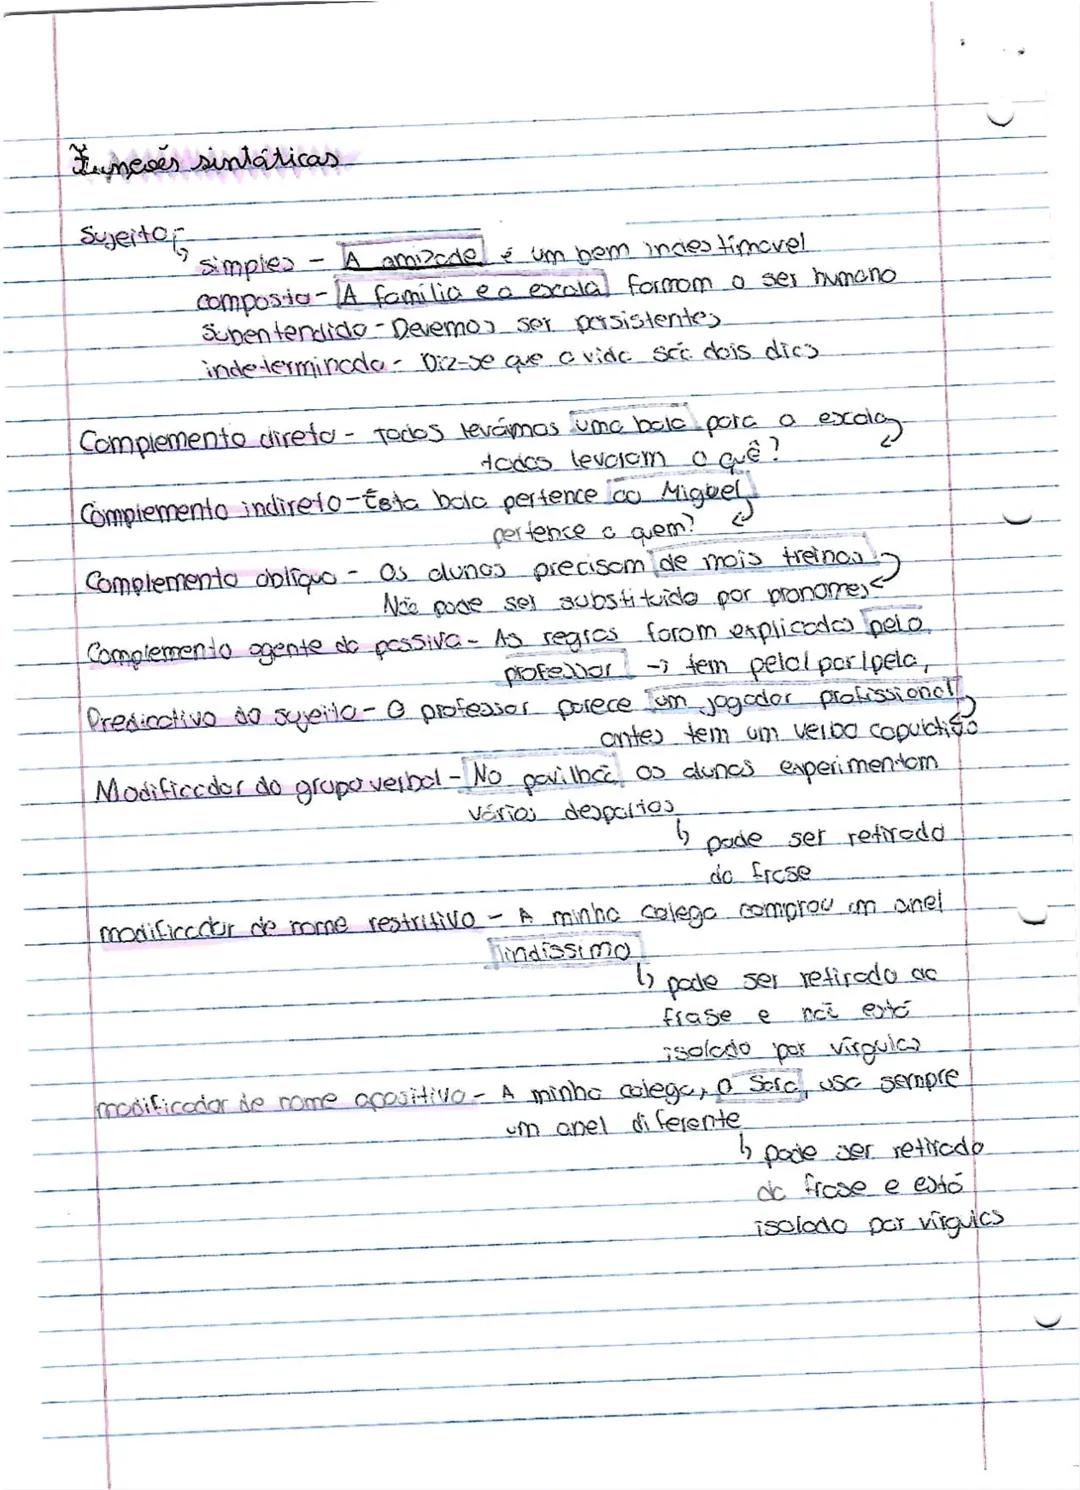 Funções sintáticas
Sujeito
simples - A amizade é um bem inestimavel
composto - A família e a escola formam o ser humano
Subentendido - Devemos ser persistentes
indeterminado - Diz-se que a vida são dois dias
Complemento direto - Todos levámos uma bola para a escola
todos levaram o quê?
Complemento indireto - Esta bola pertence ao Miguel
pertence a quem?
Complemento oblíquo - Os alunos precisam de mais treinos
Não pode ser substituido por pronomes
Complemento agente da passiva - As regras foram explicadas pelo
professor → tem pelo/por/pela,
Predicativo do sujeito - O professor parece um jogador profissional
antes tem um verbo copulativo
Modificador do grupo verbal - No pavilhão os alunos experimentam
vários desportos
↳ pode ser retirado
da frase
modificador de nome restritivo - A minha colega comprou um anel
lindíssimo
↳ pode ser retirado da
frase e não está
isolado por vírgulas
modificador de nome apositivo - A minha colega, a Sara, usa sempre
um anel diferente
↳ pode ser retirado
da frase e está
isolado por vírgulas